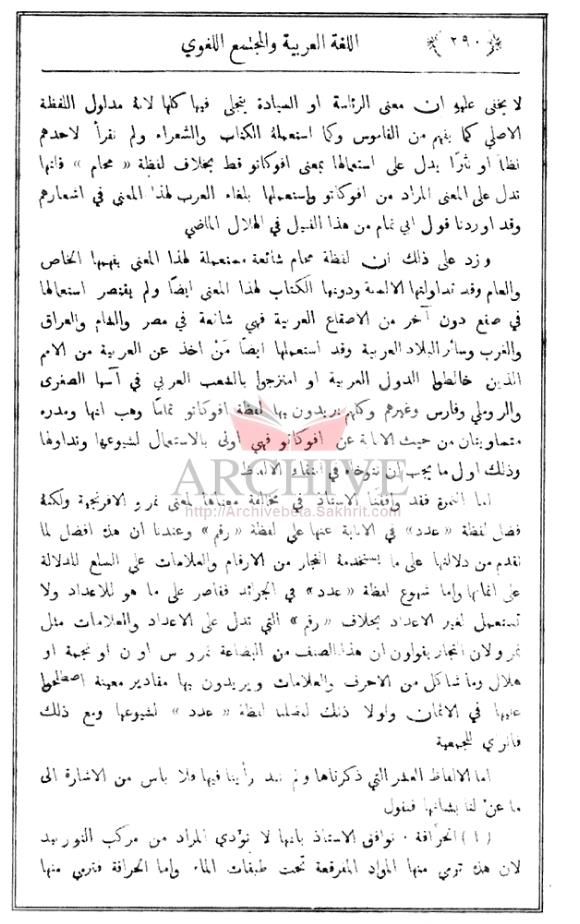 ﴿ ٢٩٠ ﴾ اللغة العربية والمجتمع اللغوي
لا يخفى عليهِ ان معنى الرئاسة او السيادة يتجلى فيها كلها لانهُ مدلول اللفظة
الاصلي كما يفهم من القاموس وكما استعملهُ الكتاب والشعراء ولم نقرأ لاحدهم
نظماً او نثرًا يدل على استعمالها بمعنى افوكاتو قط بخلاف لفظة « محام » فانها
تدل على المعنى المراد من افوكاتو واستعملها بلغاء العرب لهذا المعنى في اشعارهم
وقد اوردنا قول ابي تمام من هذا القبيل في الهلال الماضي
وزد على ذلك ان لفظة محام شائعة مستعملة لهذا المعنى يفهمها الخاص
والعام وقد تداولتها الالسنة ودونها الكتاب لهذا المعنى ايضًا ولم يقتصر استعمالها
في صقع دون آخر من الاصقاع العربية فهي شائعة في مصر والشام والعراق
والغرب وسائر البلاد العربية وقد استعملها ايضًا مَنْ اخذ عن العربية من الامم
الذين خالطوا الدول العربية او امتزجوا بالشعب العربي في آسيا الصغرى
والروملي وفارس وغيرهم وكلهم يريدون بها لفظة افوكاتو تمامًا وهب انها ومدره
متساويتان من حيث الابانة عن افوكاتو فهي اولى بالاستعمال لشيوعها وتداولها
وذلك اول ما يجب ان نتوخاه في انتقاء الالفاظ
ARCHIVE
http://Archivebeta.Sakhrit.com
اما النمرة فقد وافقنا الاستاذ في مخالفة معناها لمعنى نمرو الافرنجية ولكنهُ
فضل لفظة « عدد » في الابانة عنها على لفظة « رقم » وعندنا ان هذه افضل لما
تقدم من دلالتها على ما يستخدمهُ التجار من الارقام والعلامات على السلع للدلالة
على اثمانها واما شيوع لفظة « عدد » في الجرائد فقاصر على ما هو للاعداد ولا
تستعمل لغير الاعداد بخلاف « رقم » التي تدل على الاعداد والعلامات مثل
نمرو لان التجار يقولون ان هذا الصنف من البضاعة نمرو س او ن او نجمة او
هلال وما شاكل من الاحرف والعلامات ويريدون بها مقادير معينة اصطلحوا
عليها في الاثمان ولولا ذلك لفضلنا لفظة « عدد » لشيوعها ومع ذلك
فالرأي للجمعية
اما الالفاظ العشر التي ذكرناها ولم نبد رأينا فيها فلا باس من الاشارة الى
ما عنَّ لنا بشانها فنقول
( ١ ) الحرَّاقة · نوافق الاستاذ بانها لا تؤدي المراد من مركب التوربيد
لان هذه ترمي منها المواد المفرقعة تحت طبقات الماء واما الحراقة فترمي منها